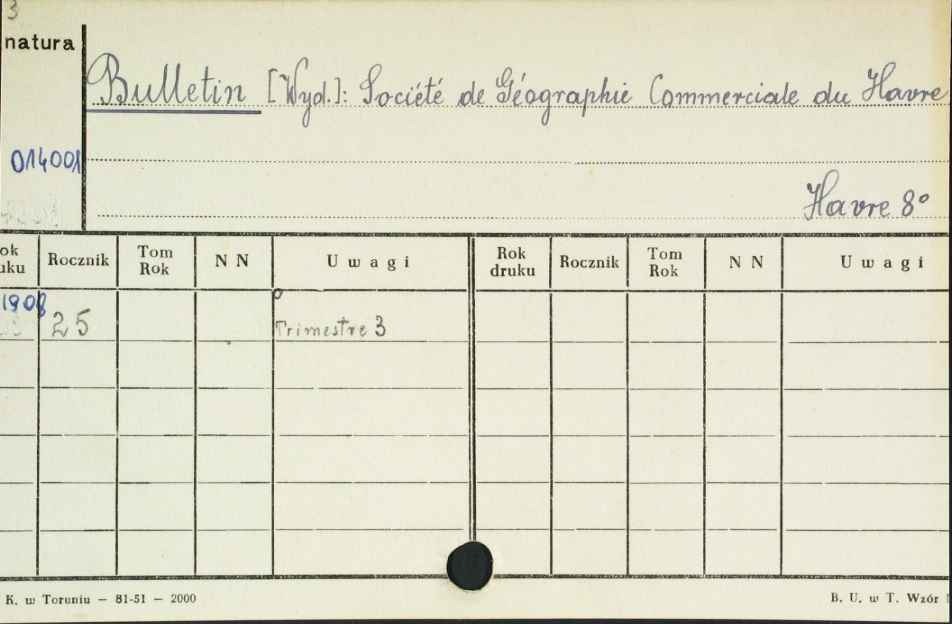 3
natura
Bulletin [Wyd.]: Société de Géographie Commerciale du Havre
014001
Havre 8°
ok
uku Rocznik Tom
Rok N N Uwagi Rok
druku Rocznik Tom
Rok N N Uwagi
1908 25 Trimestre 3
K. w Toruniu — 81-51 — 2000 B. U. w T. Wzór